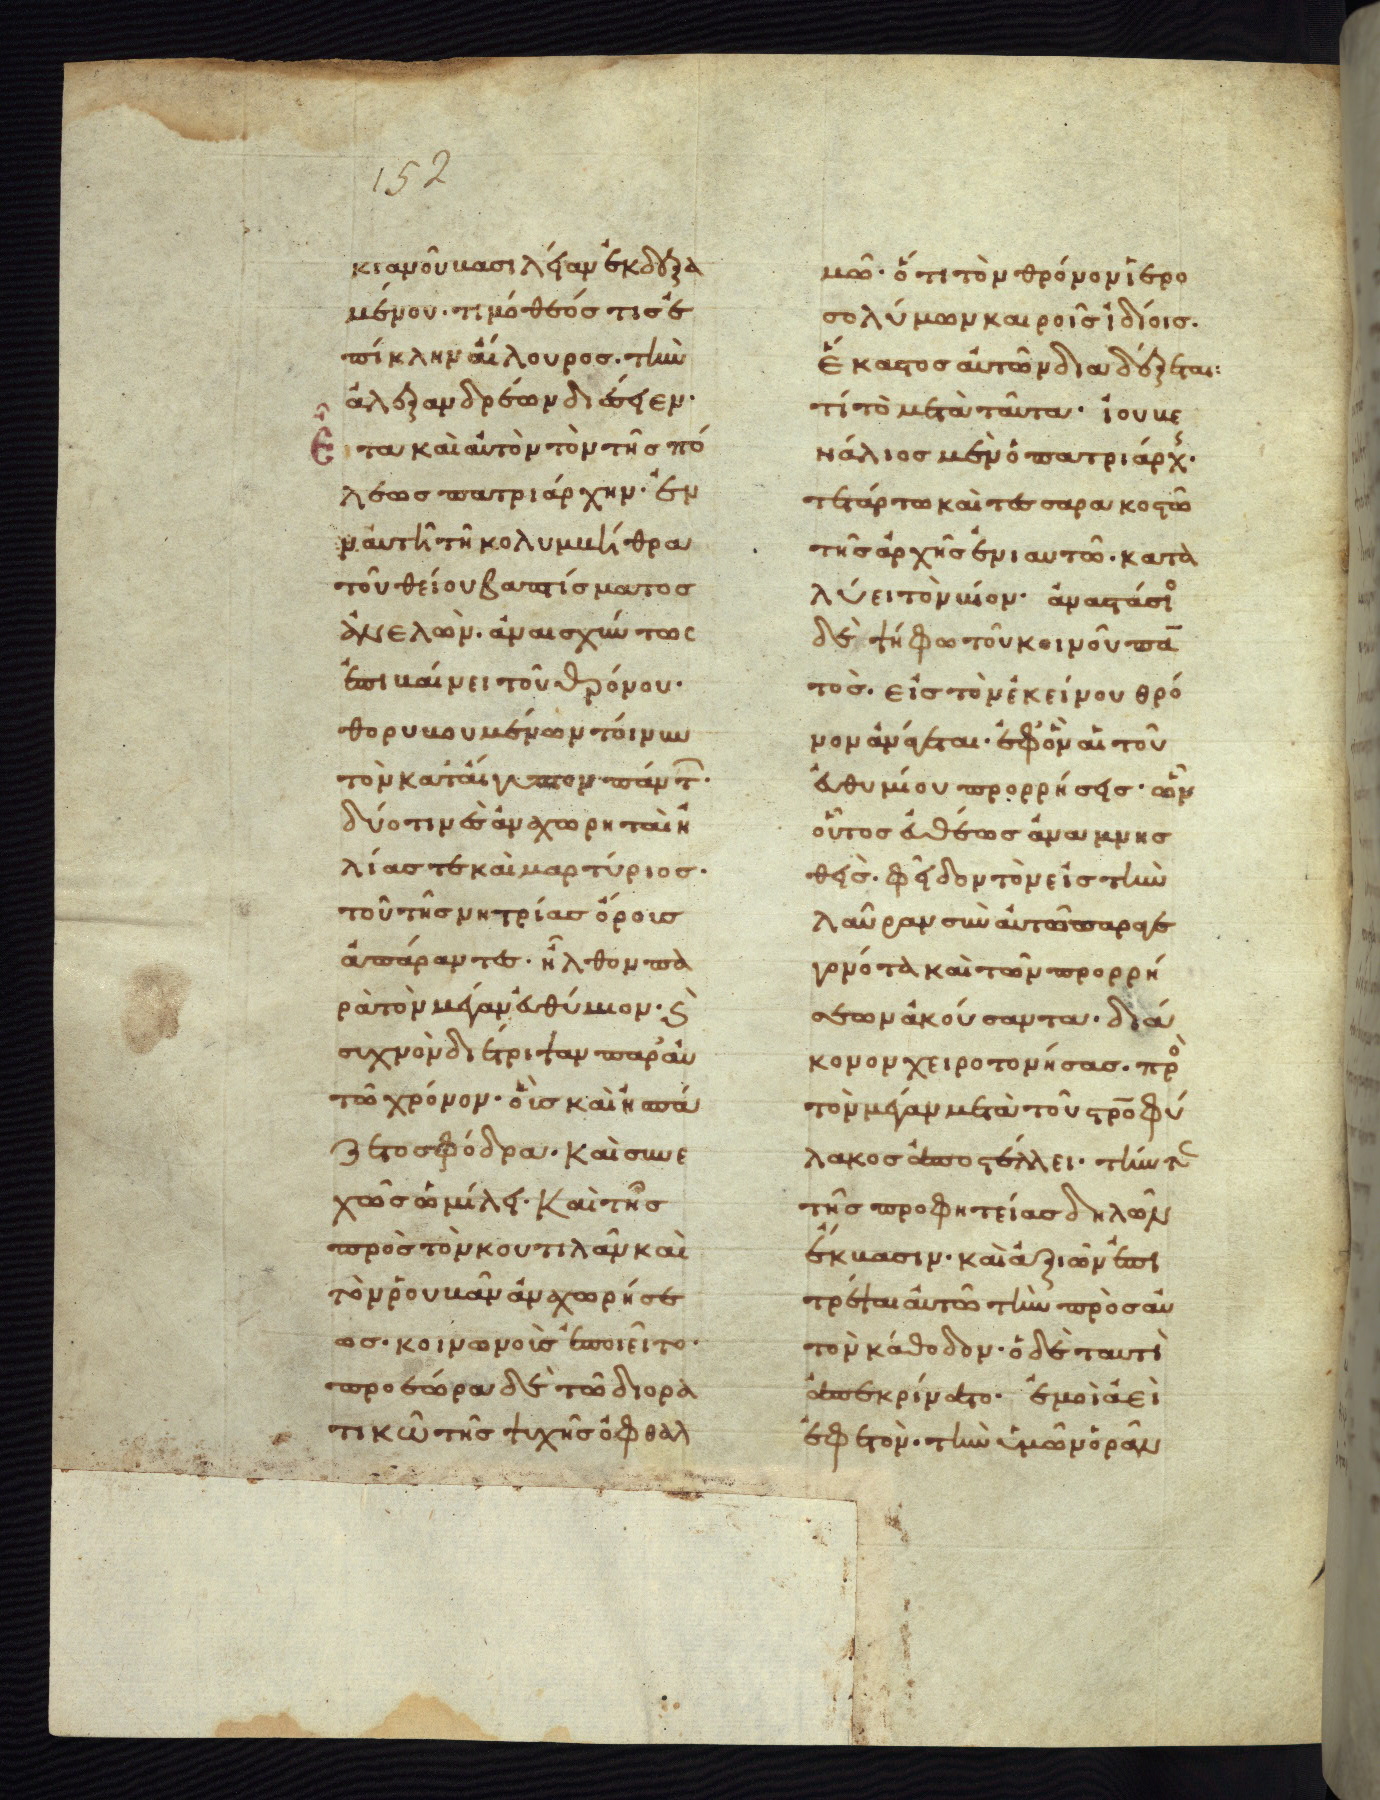 152
κιανοῦ βασιλείαν ἐκδεξα
μένου· τιμόθεός τις ἐ
πίκλην αἴλουρος· τὴν
ἀλεξανδρέων διέσειεν·
εἶτα καὶ αὐτὸν τὸν τῆς πό
λεως πατριάρχην· ἐν
αὐτῆ τῆ κολυμβήθρα
τοῦ θείου βαπτίσματος
ἀνελὼν· ἀναισχύντως
ἐπιβαίνει τοῦ θρόνου·
θορυβουμένων τοίνυν
τὸν κατ' αἴγυπτον πάντ·
δύο τινὲς ἀναχωρηταὶ ἠ
λίας τε καὶ μαρτύριος·
τοῦ τῆς νητρίας ὄρους
ἀπάραντες· ἦλθον πα
ρὰ τὸν μέγαν εὐθύμιον· καὶ
συχνὸν διέτριψαν παρ' αὐ
τῶ χρόνον· οἷς καὶ ἠσπά
ζετο σφόδρα· καὶ συνε
χῶς ὡμίλει· καὶ τῆς
πρὸς τὸν κουτιλᾶν καὶ
τὸν ῥουβᾶν ἀναχωρήσε
ως· κοινωνοὺς ἐποιεῖτο·
προεώρα δὲ τῶ διορα
τικῶ τῆς ψυχῆς ὀφθαλ
μῶ· ὅτι τὸν θρόνον ἱερο
σολύμων καιροῖς ἰδίοις·
ἕκαστος αὐτῶν διαδέξεται:
τί τὸ μετὰ ταῦτα· ἰουβε
νάλιος μὲν ὁ πατριάρχης·
τετάρτω καὶ τεσσαρακοστῶ
τῆς ἀρχῆς ἐνιαυτῶ· κατα
λύει τὸν βίον· ἀναστάσιο
δὲ ψήφω τοῦ κοινοῦ πα
τὸς· εἰς τὸν ἐκείνου θρό
νον ἀνάγεται· ἐφ' ὃν αἱ τοῦ
εὐθυμίου προρρήσεις· ὧν
οὗτος εὐθέως ἀναμνησ
θεὶς· φεῖδον τὸν εἰς τὴν
λαῦραν σὺν αὐτῶ παραγε
γονότα καὶ τῶν προρρή
σεων ἀκούσαντα· διά
κονον χειροτονήσας· προ
τὸν μέγαν μετὰ τοῦ σταυροφύ
λακος ἀποστέλλει· τήν τε
τῆς προφητείας δηλῶν
ἔκβασιν· καὶ ἀξιῶν ἐπι
τρέψαι αὐτῶ τὴν πρὸς αὐ
τὸν κάθοδον· ὁ δὲ ταυτὶ
ἀπεκρίνατο· ἐμοὶ ἀεὶ
ἐφετὸν· τὴν ὑμῶν ὁρᾶν